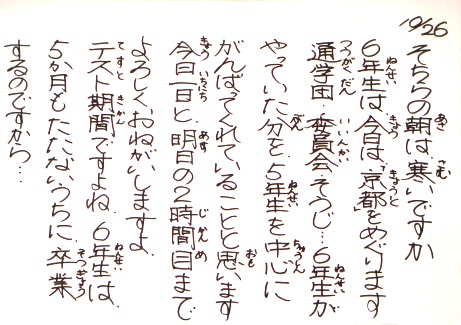 10/26
そちらの朝は寒いですか
6年生は、今日は、「京都」をめぐります
通学団・委員会・そうじ…6年生が
やっていた分を、5年生を中心に
がんばってくれていることと思います
今日一日と、明日の2時間目まで
よろしく、おねがいしますよ。
テスト期間ですよね。6年生は、
5か月もたたないうちに、卒業
するのですから…